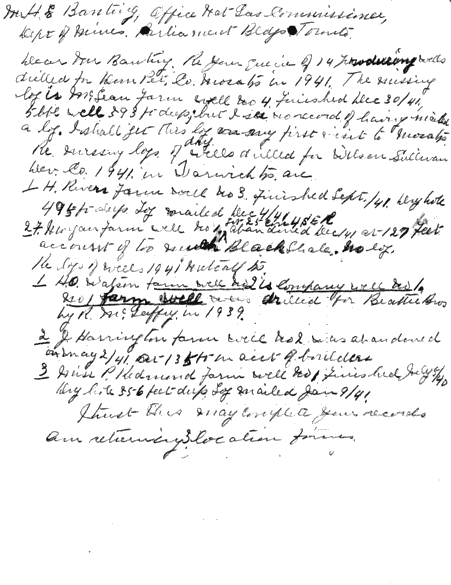 Mr H. E Banting, Office Nat Gas Commissioner,
Dept of Mines, Parliament Bldgs Toronto
Dear Mr Banting. Re your queire of 14 Producing wells
drilled for Dom Pet, Co. Mosa tp in 1941. The missing
log is McLean Farm well No 4, finished Dec 30/41,
5 bbl well 393 ft deep, but I see no record of having mailed
a log. I shall get this log on my first visit to Mosa tp.
Re. missing logs of dry wells drilled for Wilson Sullivan
Dev. Co. 1941. in Warwich tp. are
1 H. River Farm well No 3. finished Sept./41. Dry hole
495 ft deep Log mailed Dec 4/41
2 F. Morgan farm well No 1, abandoned Dec/41 at 127 feet
account of to much Black Shale. No log
Re logs of wells 1941 Metcalf tp.
1 H.O. Watson farm well No 2 is Company well No 1,
No 1 farm well was drilled for Beattie Bros
by R. Mc in 1939.
2 J Harrington farm well No 2 was abandoned
on May 2/41. at 135 ft on acct of boulders
3 Miss P. Redmond Farm well No 1, finished, July 4/40
Dry hole 356 feet deep Log mailed Jan 9/41.
I trust this may complete your records
am returning 3 location forms